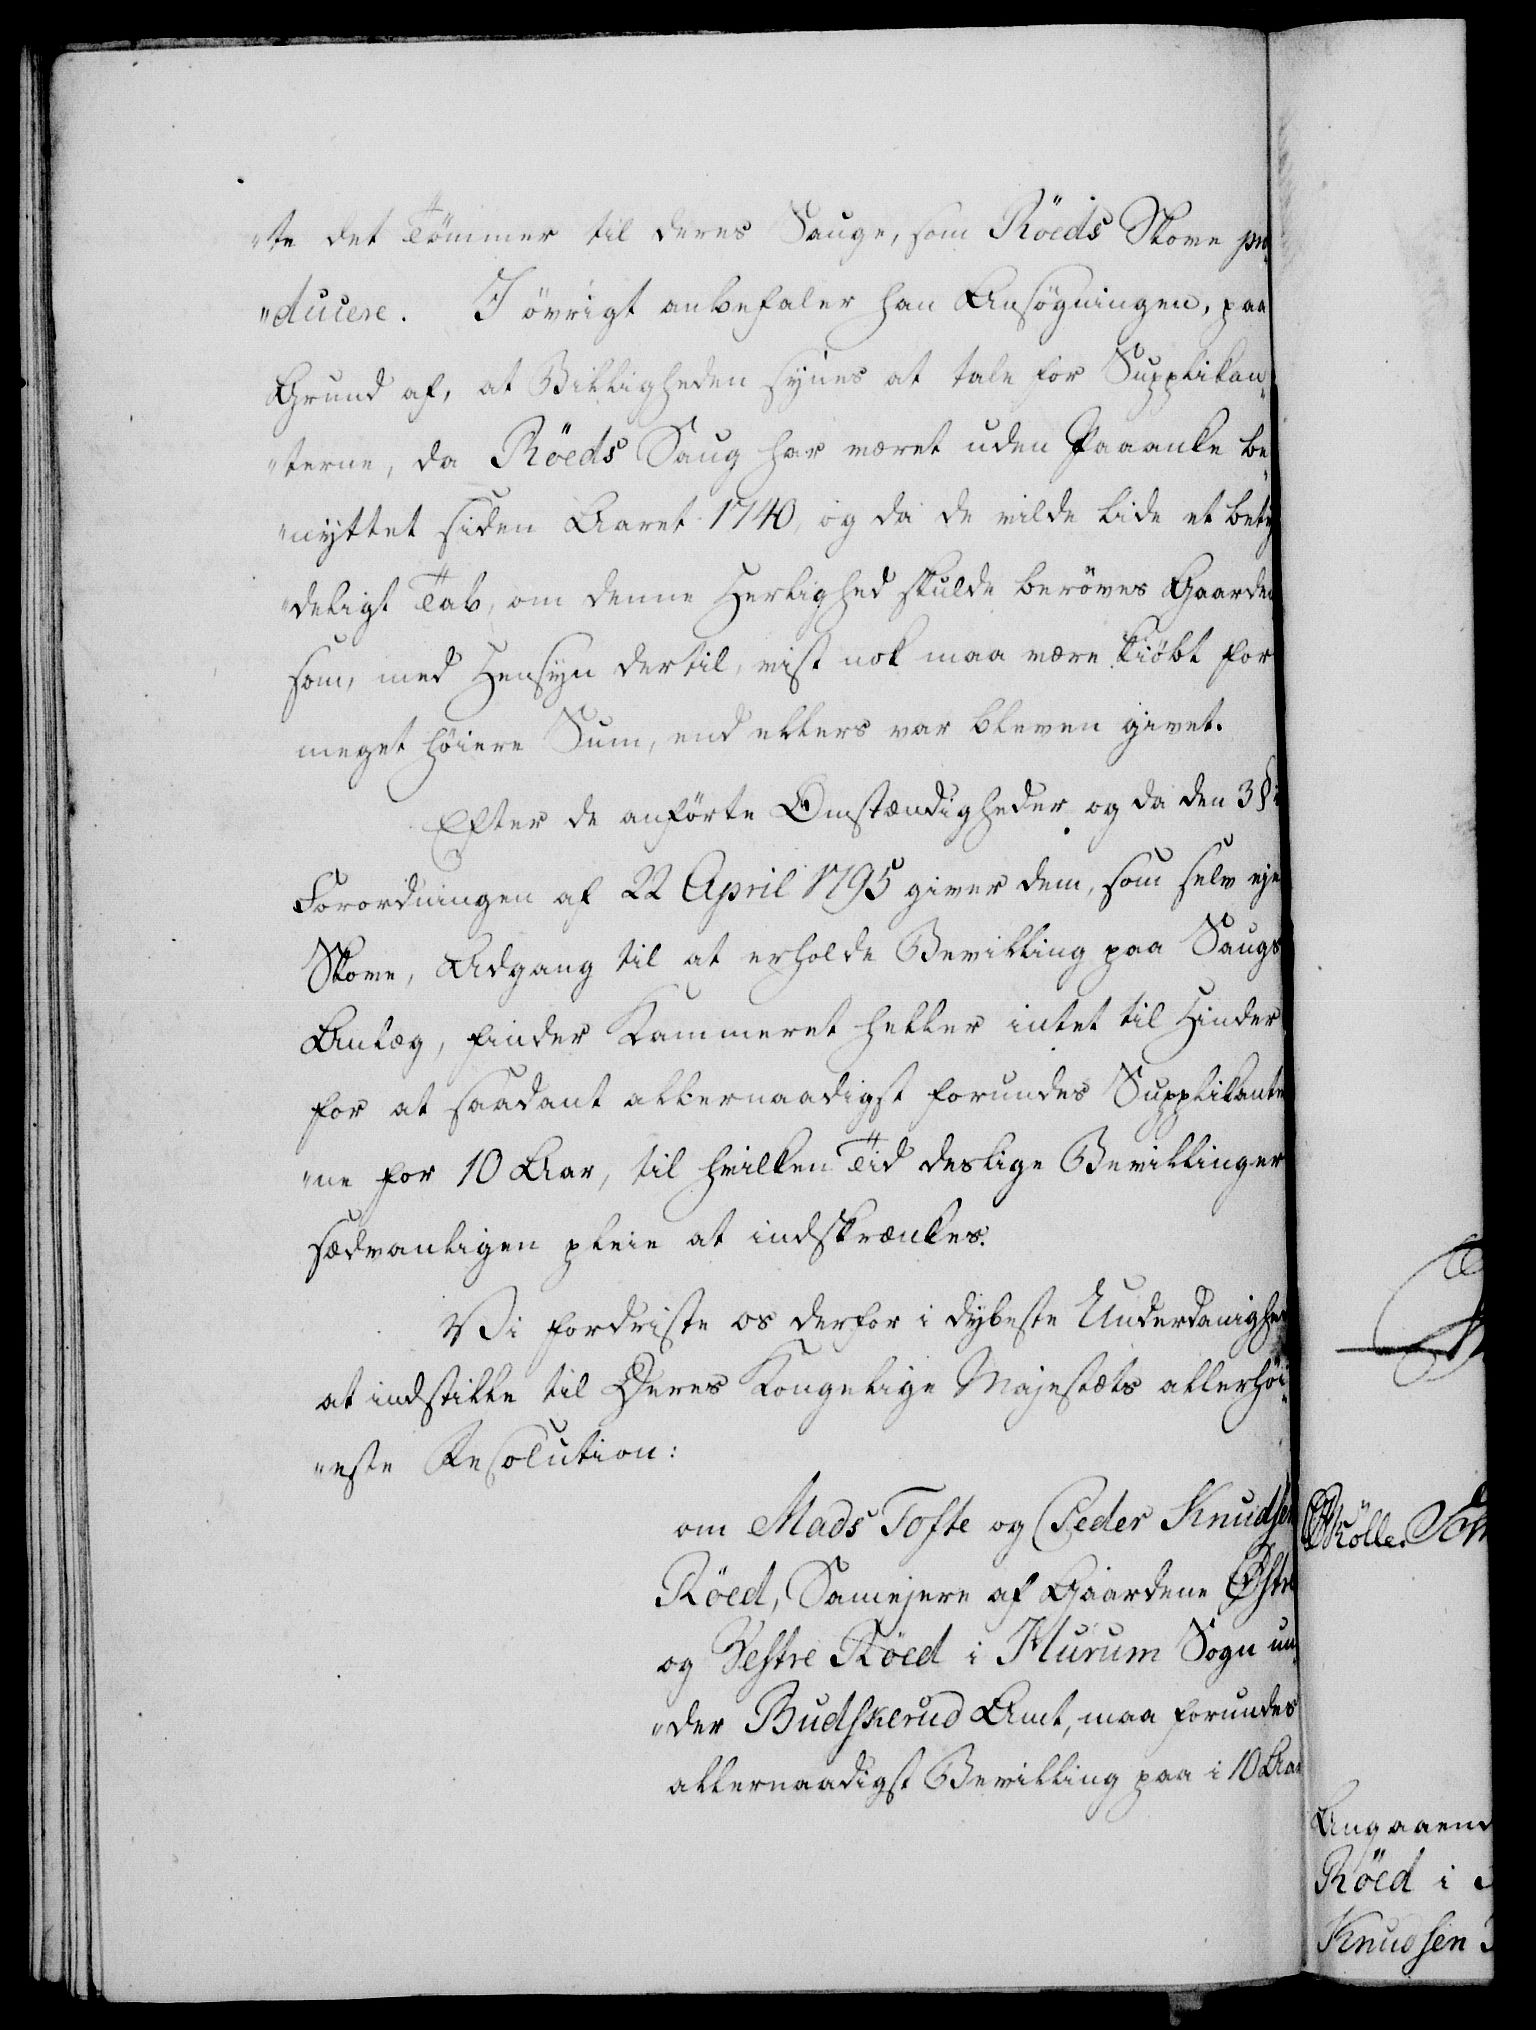 "te det Tömmer til deres Sauge, som Röeds Skove pro¬
"ducere. I övrigt anbefaler han Ansögningen, paa
Grund af, at Billigheden synes at tale for Supplikan¬
"terne, da Röeds Saug har været uden Paaanke be¬
"nyttet siden Aaret 1740, og da de vilde lide et bety
"deligt Tab, om denne Herlighed skulde beröves Gaarden
som, med Hensyn dertil, vist nok maa være kiöbt for
meget höiere Sum, end ellers var bleven givet.
Efter de anförte Omstændigheder og da den 3 §
Forordningen af 22 April 1795 giver dem, som selv eje
Skove, Adgang til at erholde Bevilling paa Saugs
Anlæg, finder Kammeret heller intet til Hinder
for at saadant allernaadigst forundes Supplikante
"ne for 10 Aar, til hvilken Tid deslige Bevillinger
sædvanligen pleie at indskrænkes.
Vi fordriste os derfor i dybeste Underdanighed
at indstille til Deres Kongelige Majestæts allerhöi¬
"este Resolution:
om Mads Tofte og Peder Knudsen
Röed, Samejere af Gaardene Østre
og Vestre Röed i Hurum Sogn un¬
"der Budskerud Amt, maa forundes
allernaadigst Bevilling paa i 10 Aar
Angaaend
Röed i
Knudsen